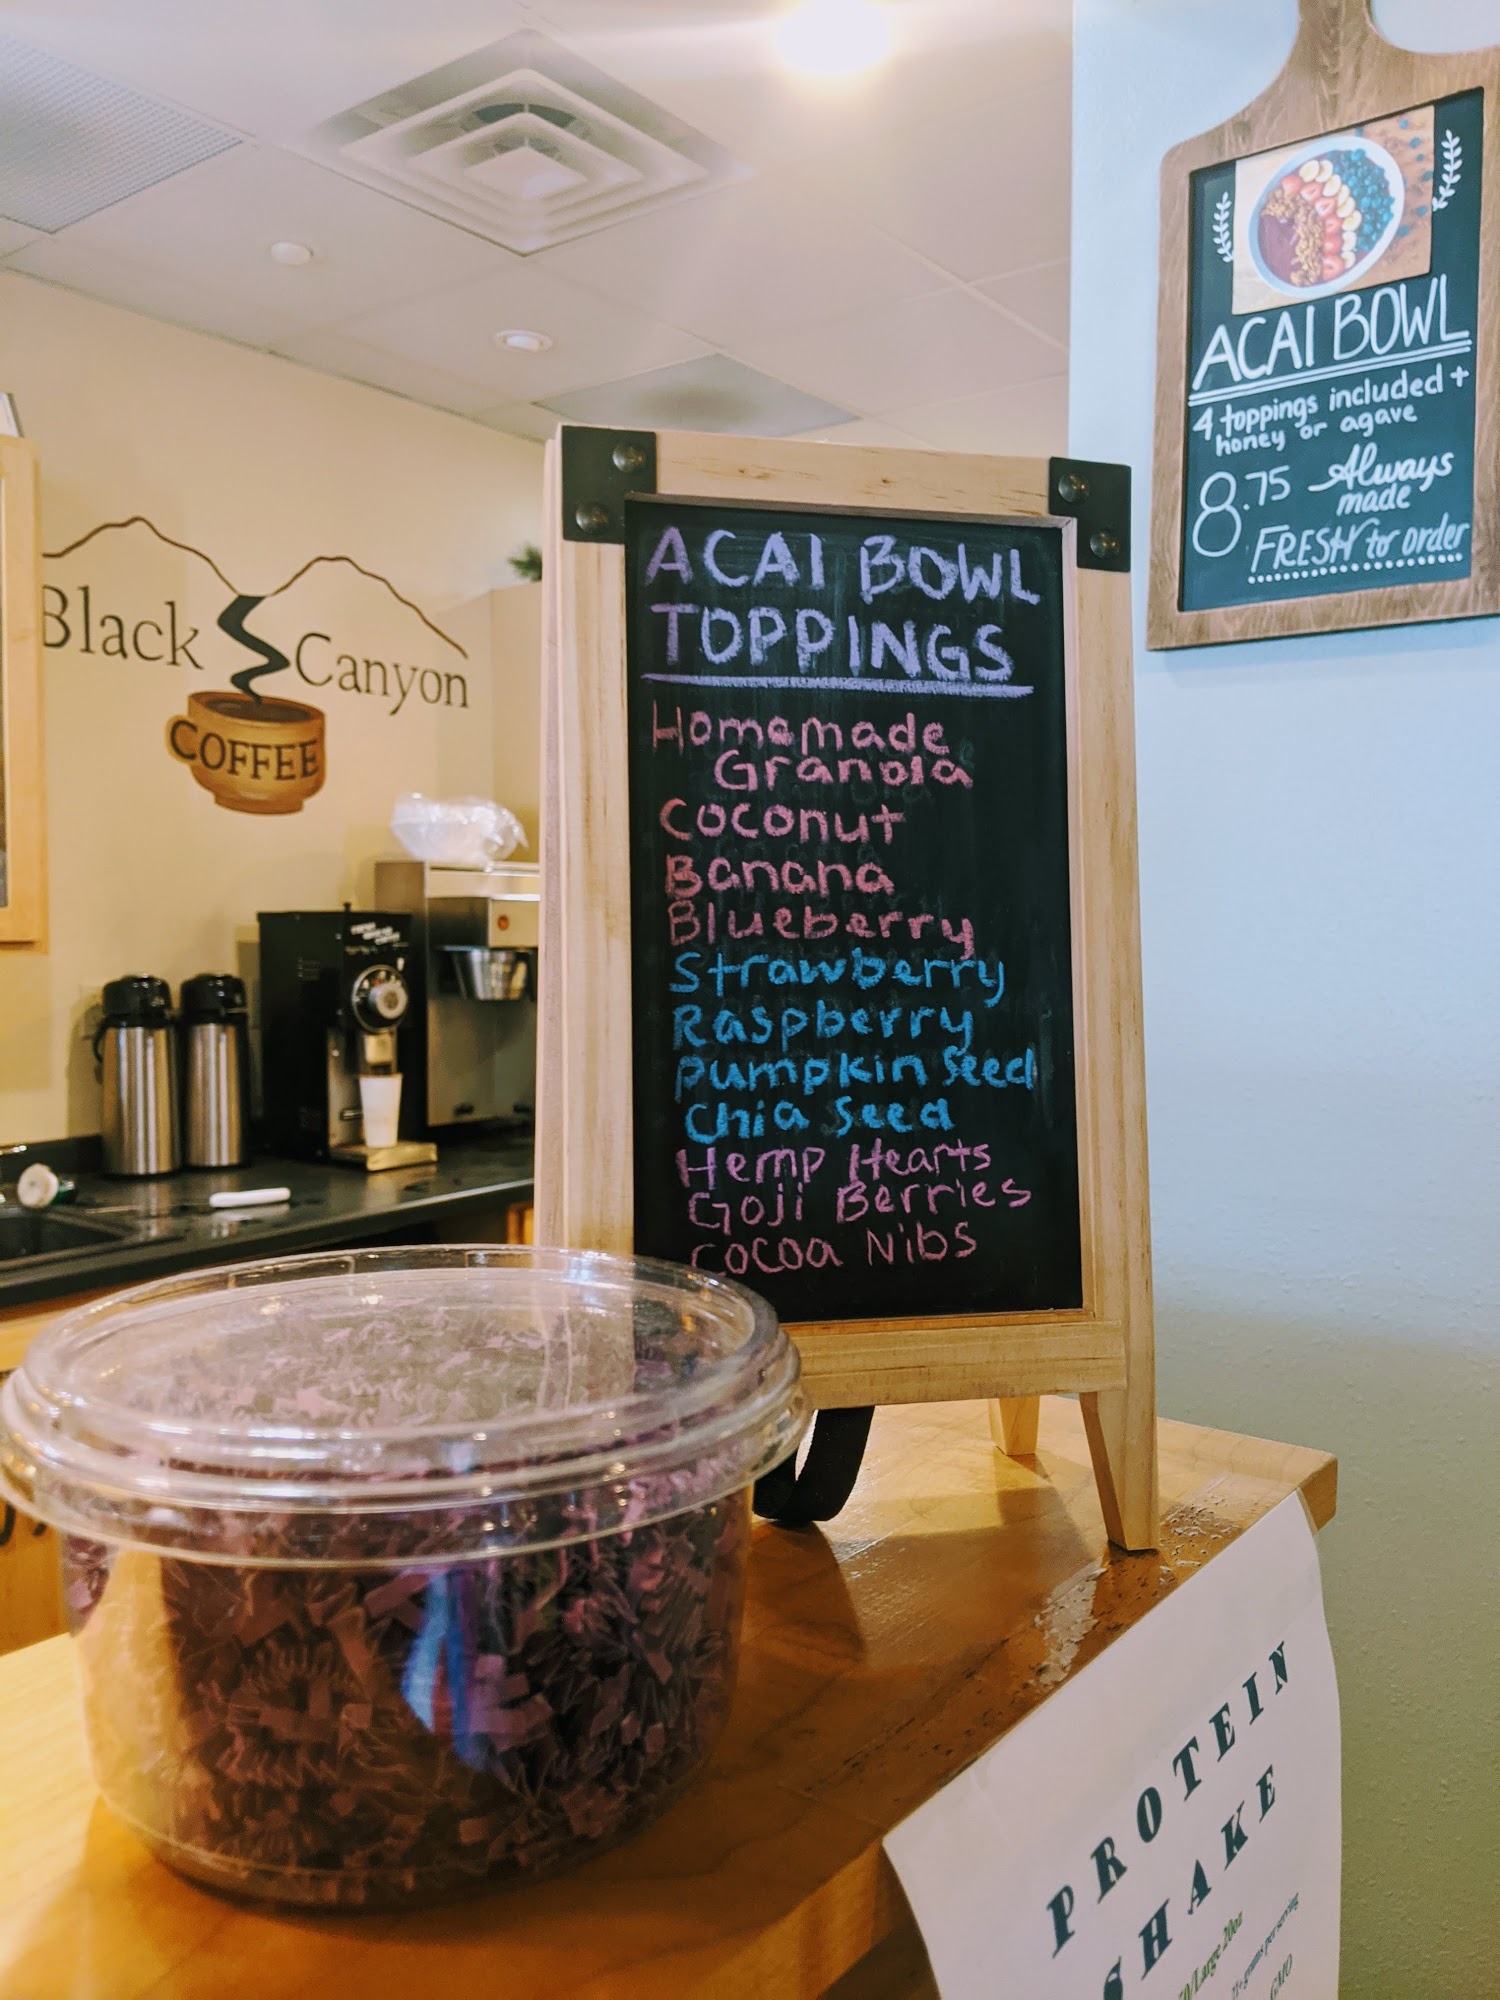 Black Canyon
COFFEE
ACAI BOWL
TOPPINGS
Homemade
Granola
Coconut
Banana
Blueberry
Strawberry
Raspberry
Pumpkin Seed
Chia Seed
Hemp Hearts
Goji Berries
Cocoa Nibs
ACAI BOWL
4 toppings included +
honey or agave
8.75 Always
made
FRESH to order
PROTEIN
SHAKE
/Large 20oz
grams per serving
GMO